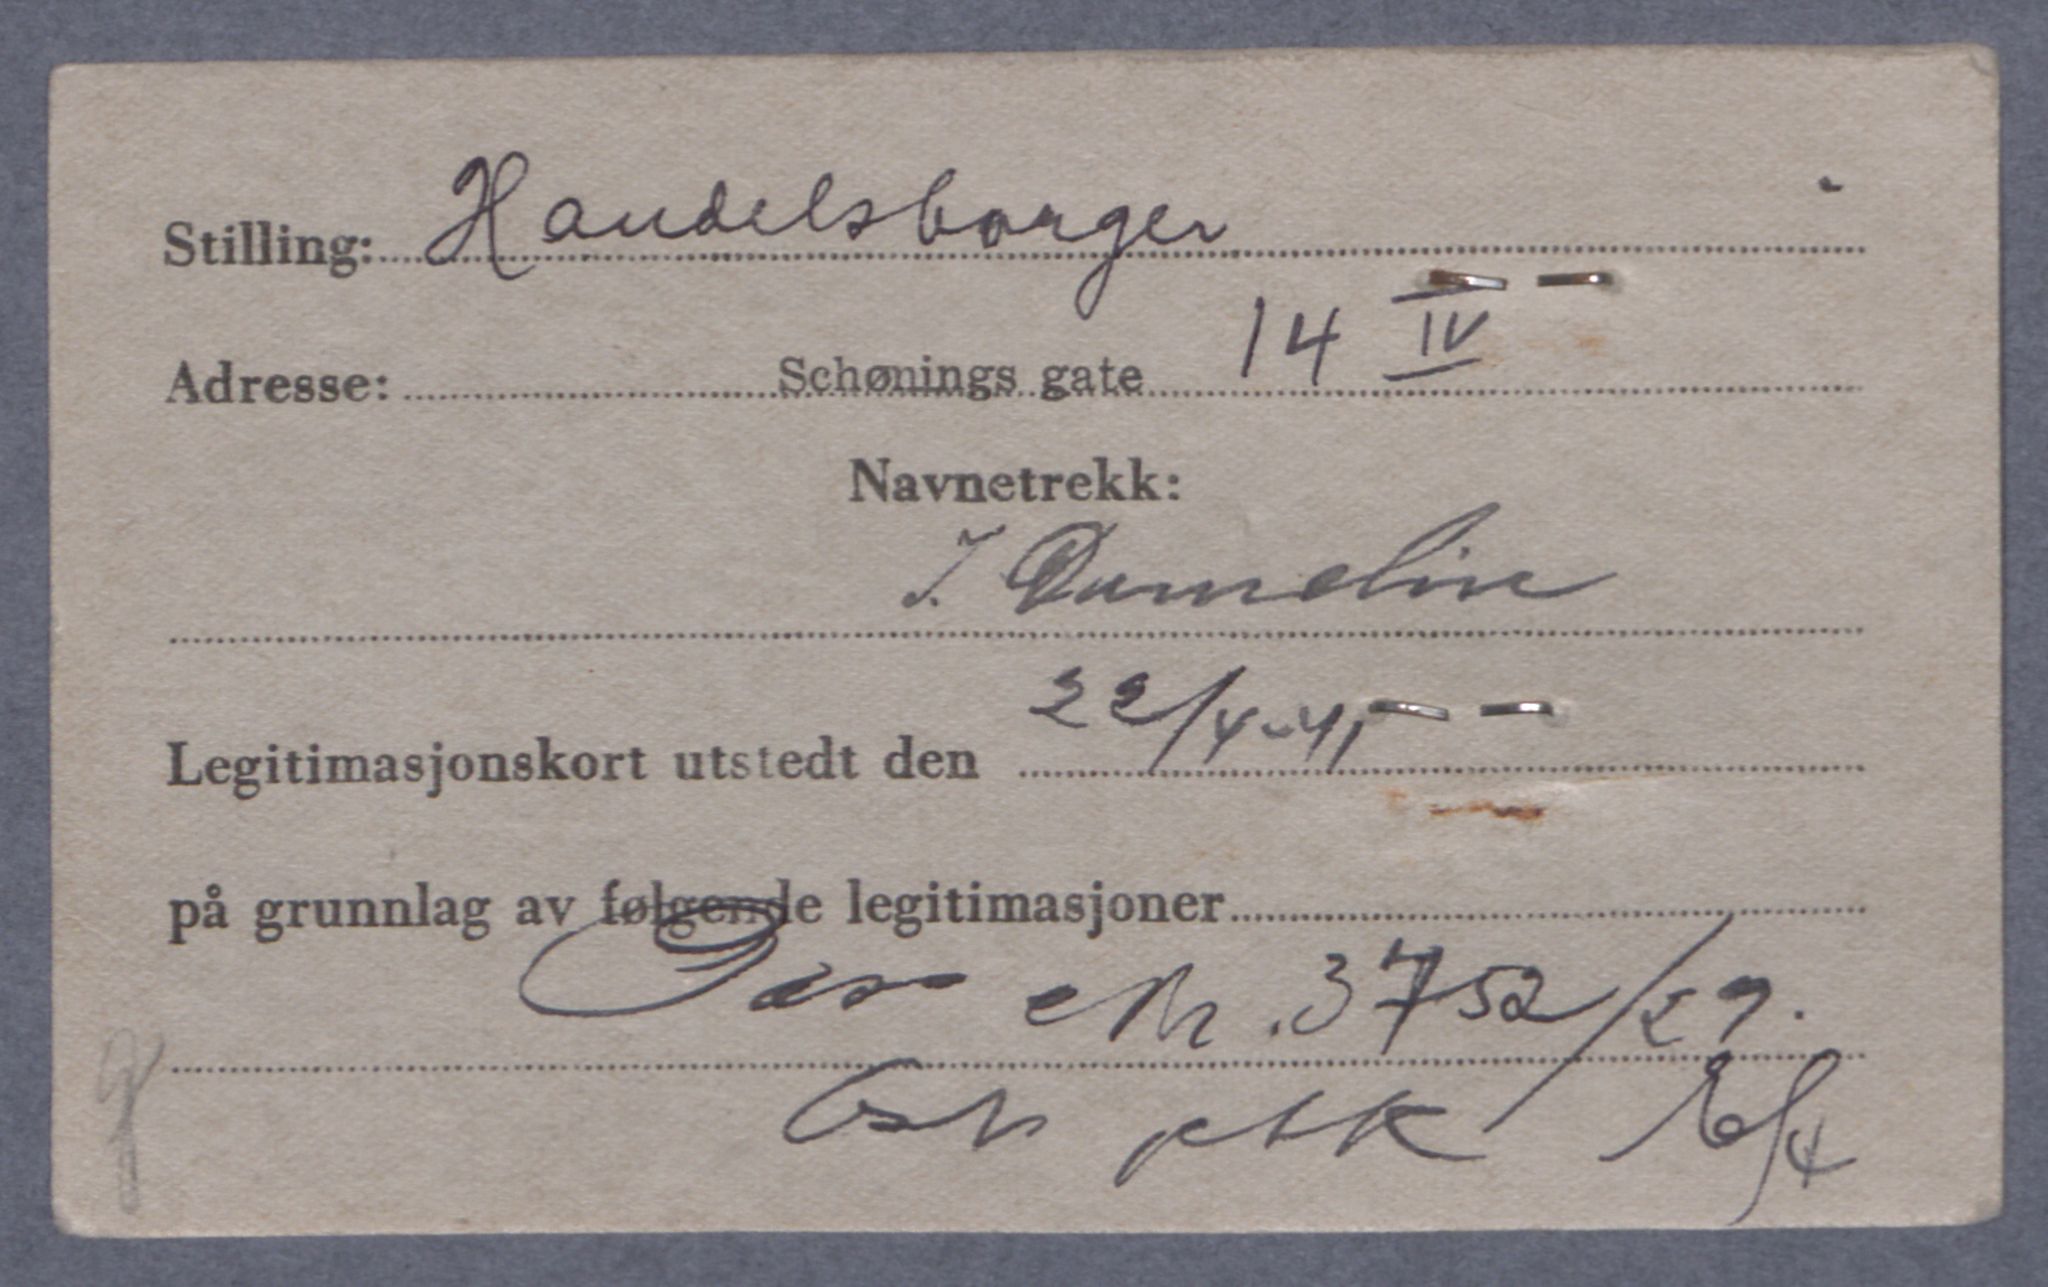 Stilling: Handelsborger
Adresse: Schønings gate 14 IV
Navnetrekk:
I. Dumelin
Legitimasjonskort utstedt den 22/4-41
på grunnlag av følgende legitimasjoner
Pass Nr. 3752/29.
Osl. ptk